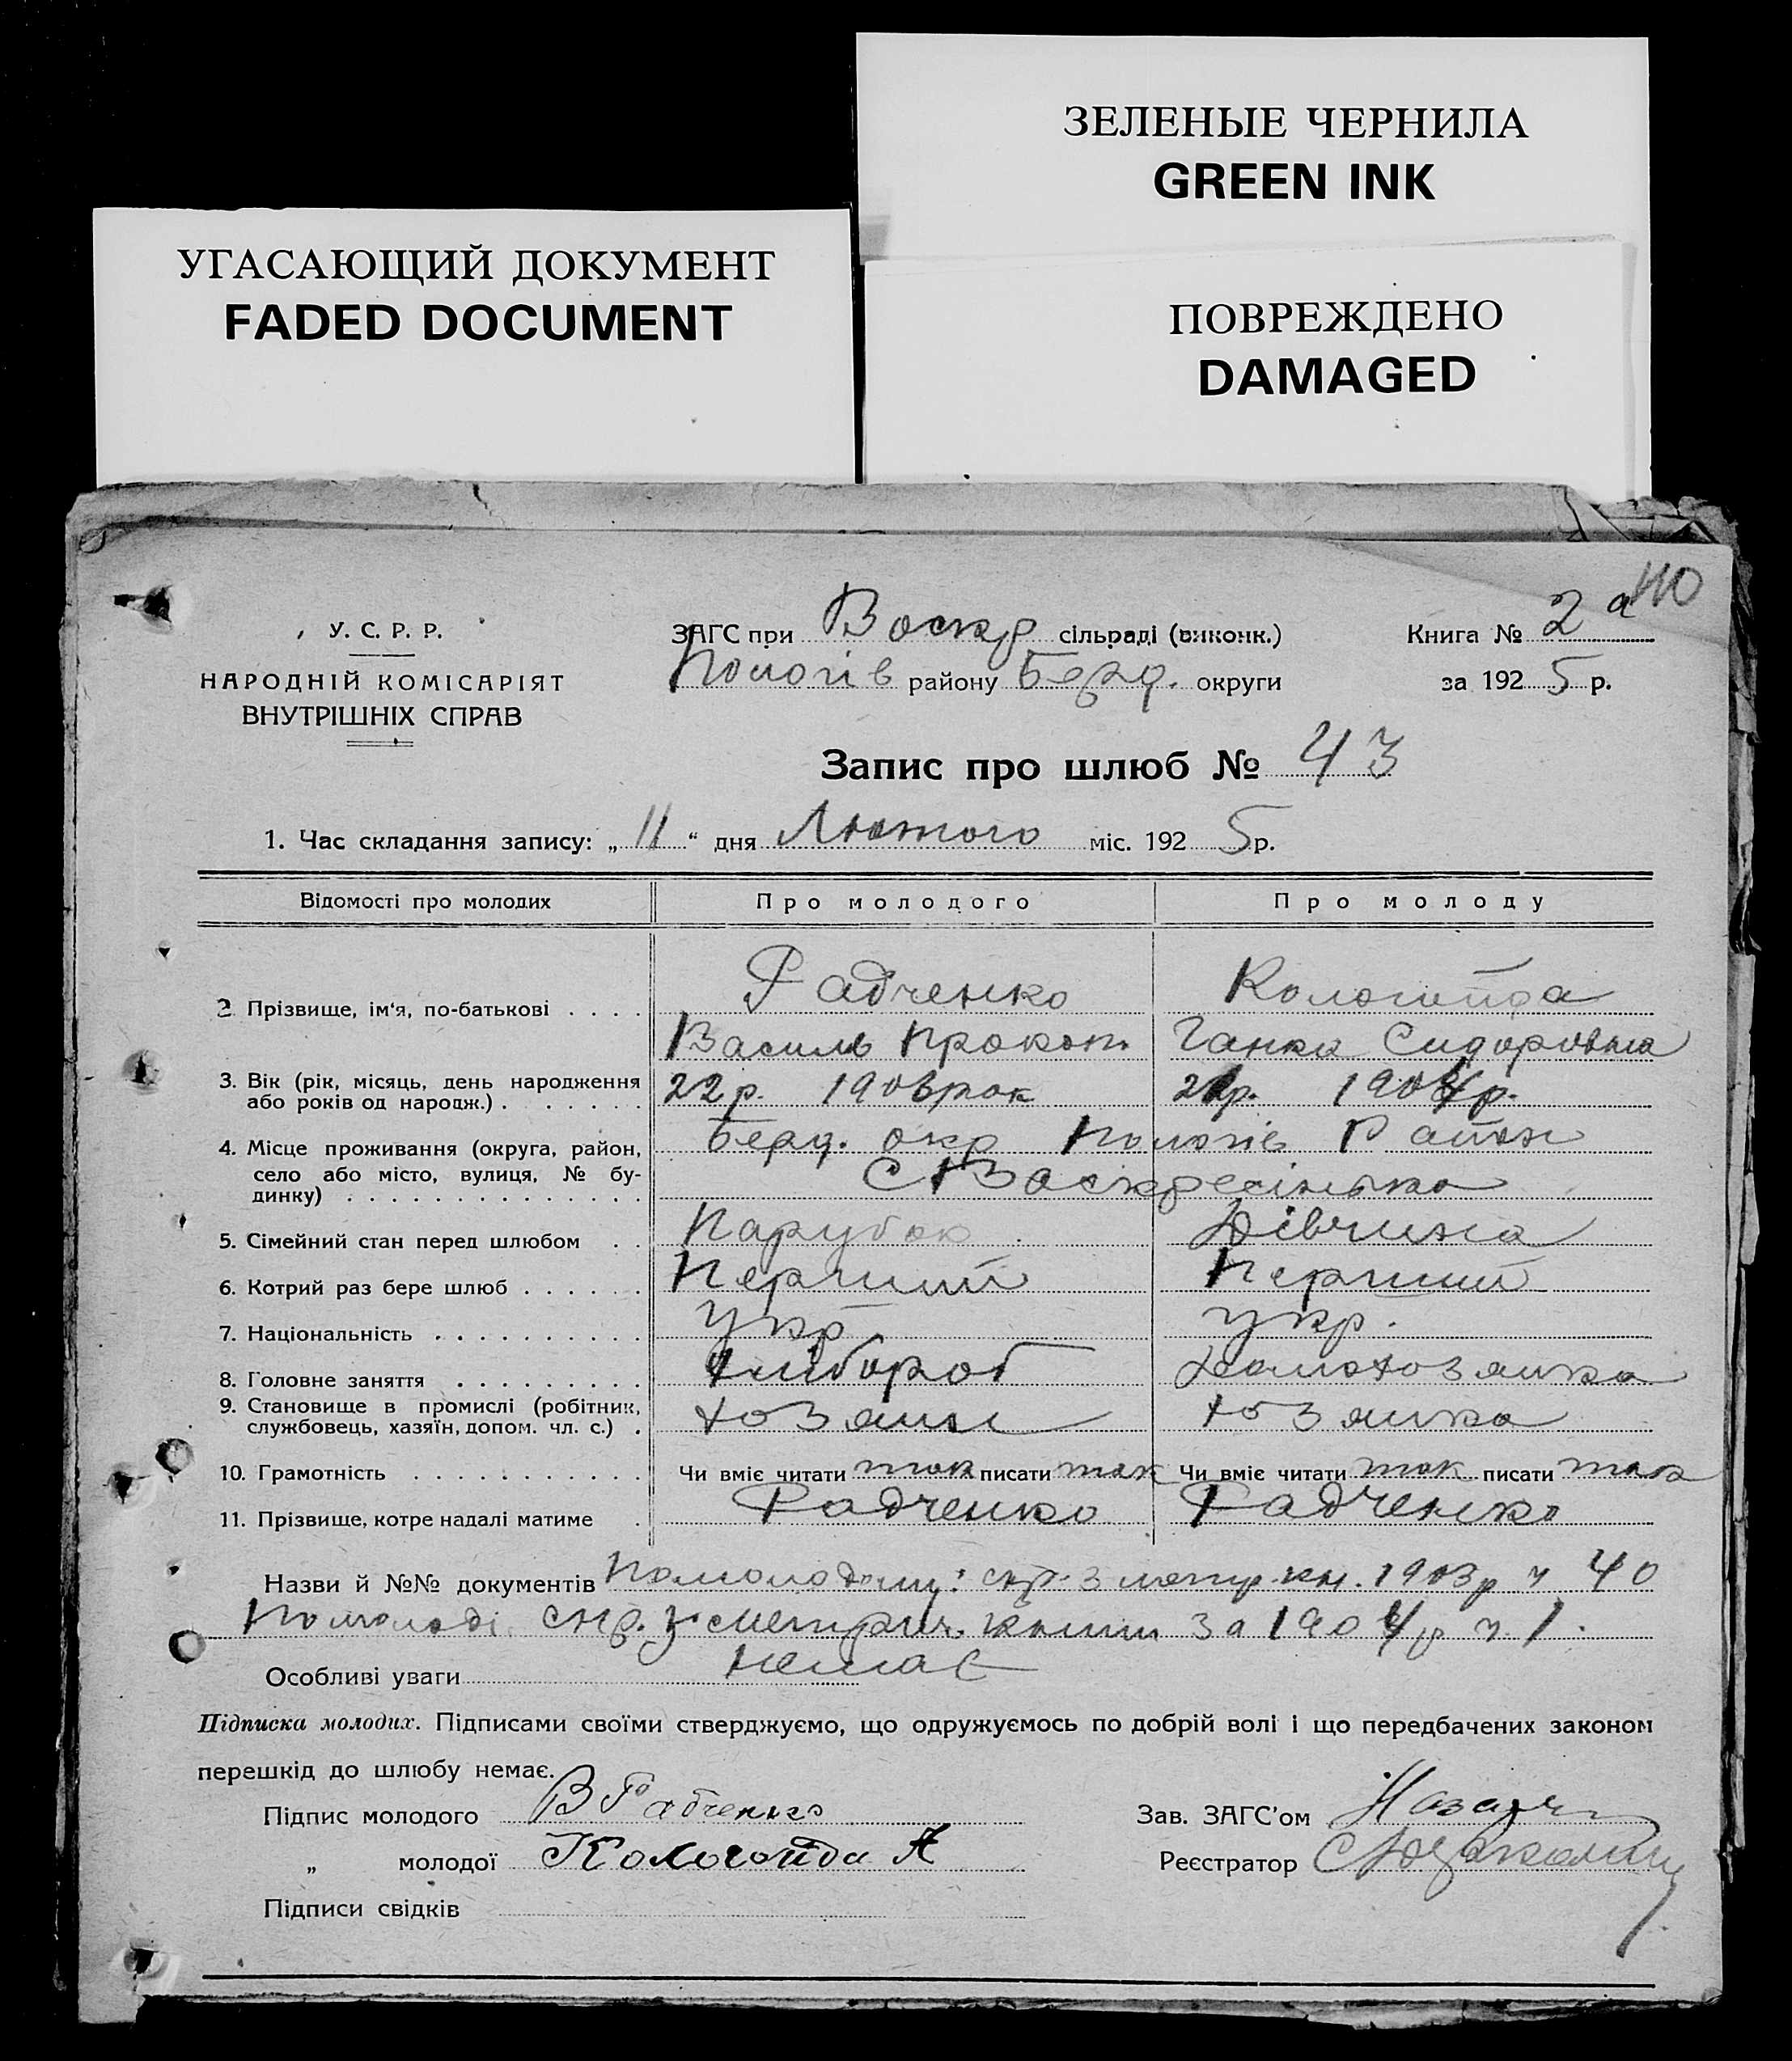 ЗЕЛЕНЫЕ ЧЕРНИЛА
GREEN INK
УГАСАЮЩИЙ ДОКУМЕНТ
FADED DOCUMENT
ПОВРЕЖДЕНО
DAMAGED
110
У. С. Р. Р.
НАРОДНІЙ КОМІСАРІЯТ
ВНУТРІШНІХ СПРАВ
ЗАГС при Воскр сільраді (виконк.)
Пологів району Берд. округи
Книга № 2а
за 1925 р.
Запис про шлюб № 43
1. Час складання запису: „11“ дня Лютого міс. 1925р.
Відомості про молодих Про молодого Про молоду
2 Прізвище, ім'я, по-батькові . . . . Радченко Кологойда
Василь Прокоп. Ганна Сидоровна
3. Вік (рік, місяць, день народження або років од народж.) . . . . . . . 22р. 1903рок 21р. 1904р.
4. Місце проживання (округа, район, село або місто, вулиця, № будинку) . . . . . . . . . . . . . . Берд. окр Пологів Район
С Воскресінька
5. Сімейний стан перед шлюбом . . Парубок Дівчина
6. Котрий раз бере шлюб . . . . . . Перший Перший
7. Національність . . . . . . . . . . Укр Укр.
8. Головне заняття . . . . . . . . . Хлібороб Домохозяйка
9. Становище в промислі (робітник, службовець, хазяїн, допом. чл. с.) . хозяин хозяйка
10. Грамотність . . . . . . . . . . . Чи вміє читати так писати так Чи вміє читати так писати так
11. Прізвище, котре надалі матиме . Радченко Радченко
Назви й №№ документів По молодому: спр. з метр. кн. 1903р ч 40
По молоді спр. з метрич. книги за 1904р ч. 1.
Особливі уваги немає
Підписка молодих. Підписами своїми стверджуємо, що одружуємось по добрій волі і що передбачених законом
перешкід до шлюбу немає.
Підпис молодого В Радченко
Зав. ЗАГС'ом
„ молодої Кологойда А
Реєстратор
Підписи свідків